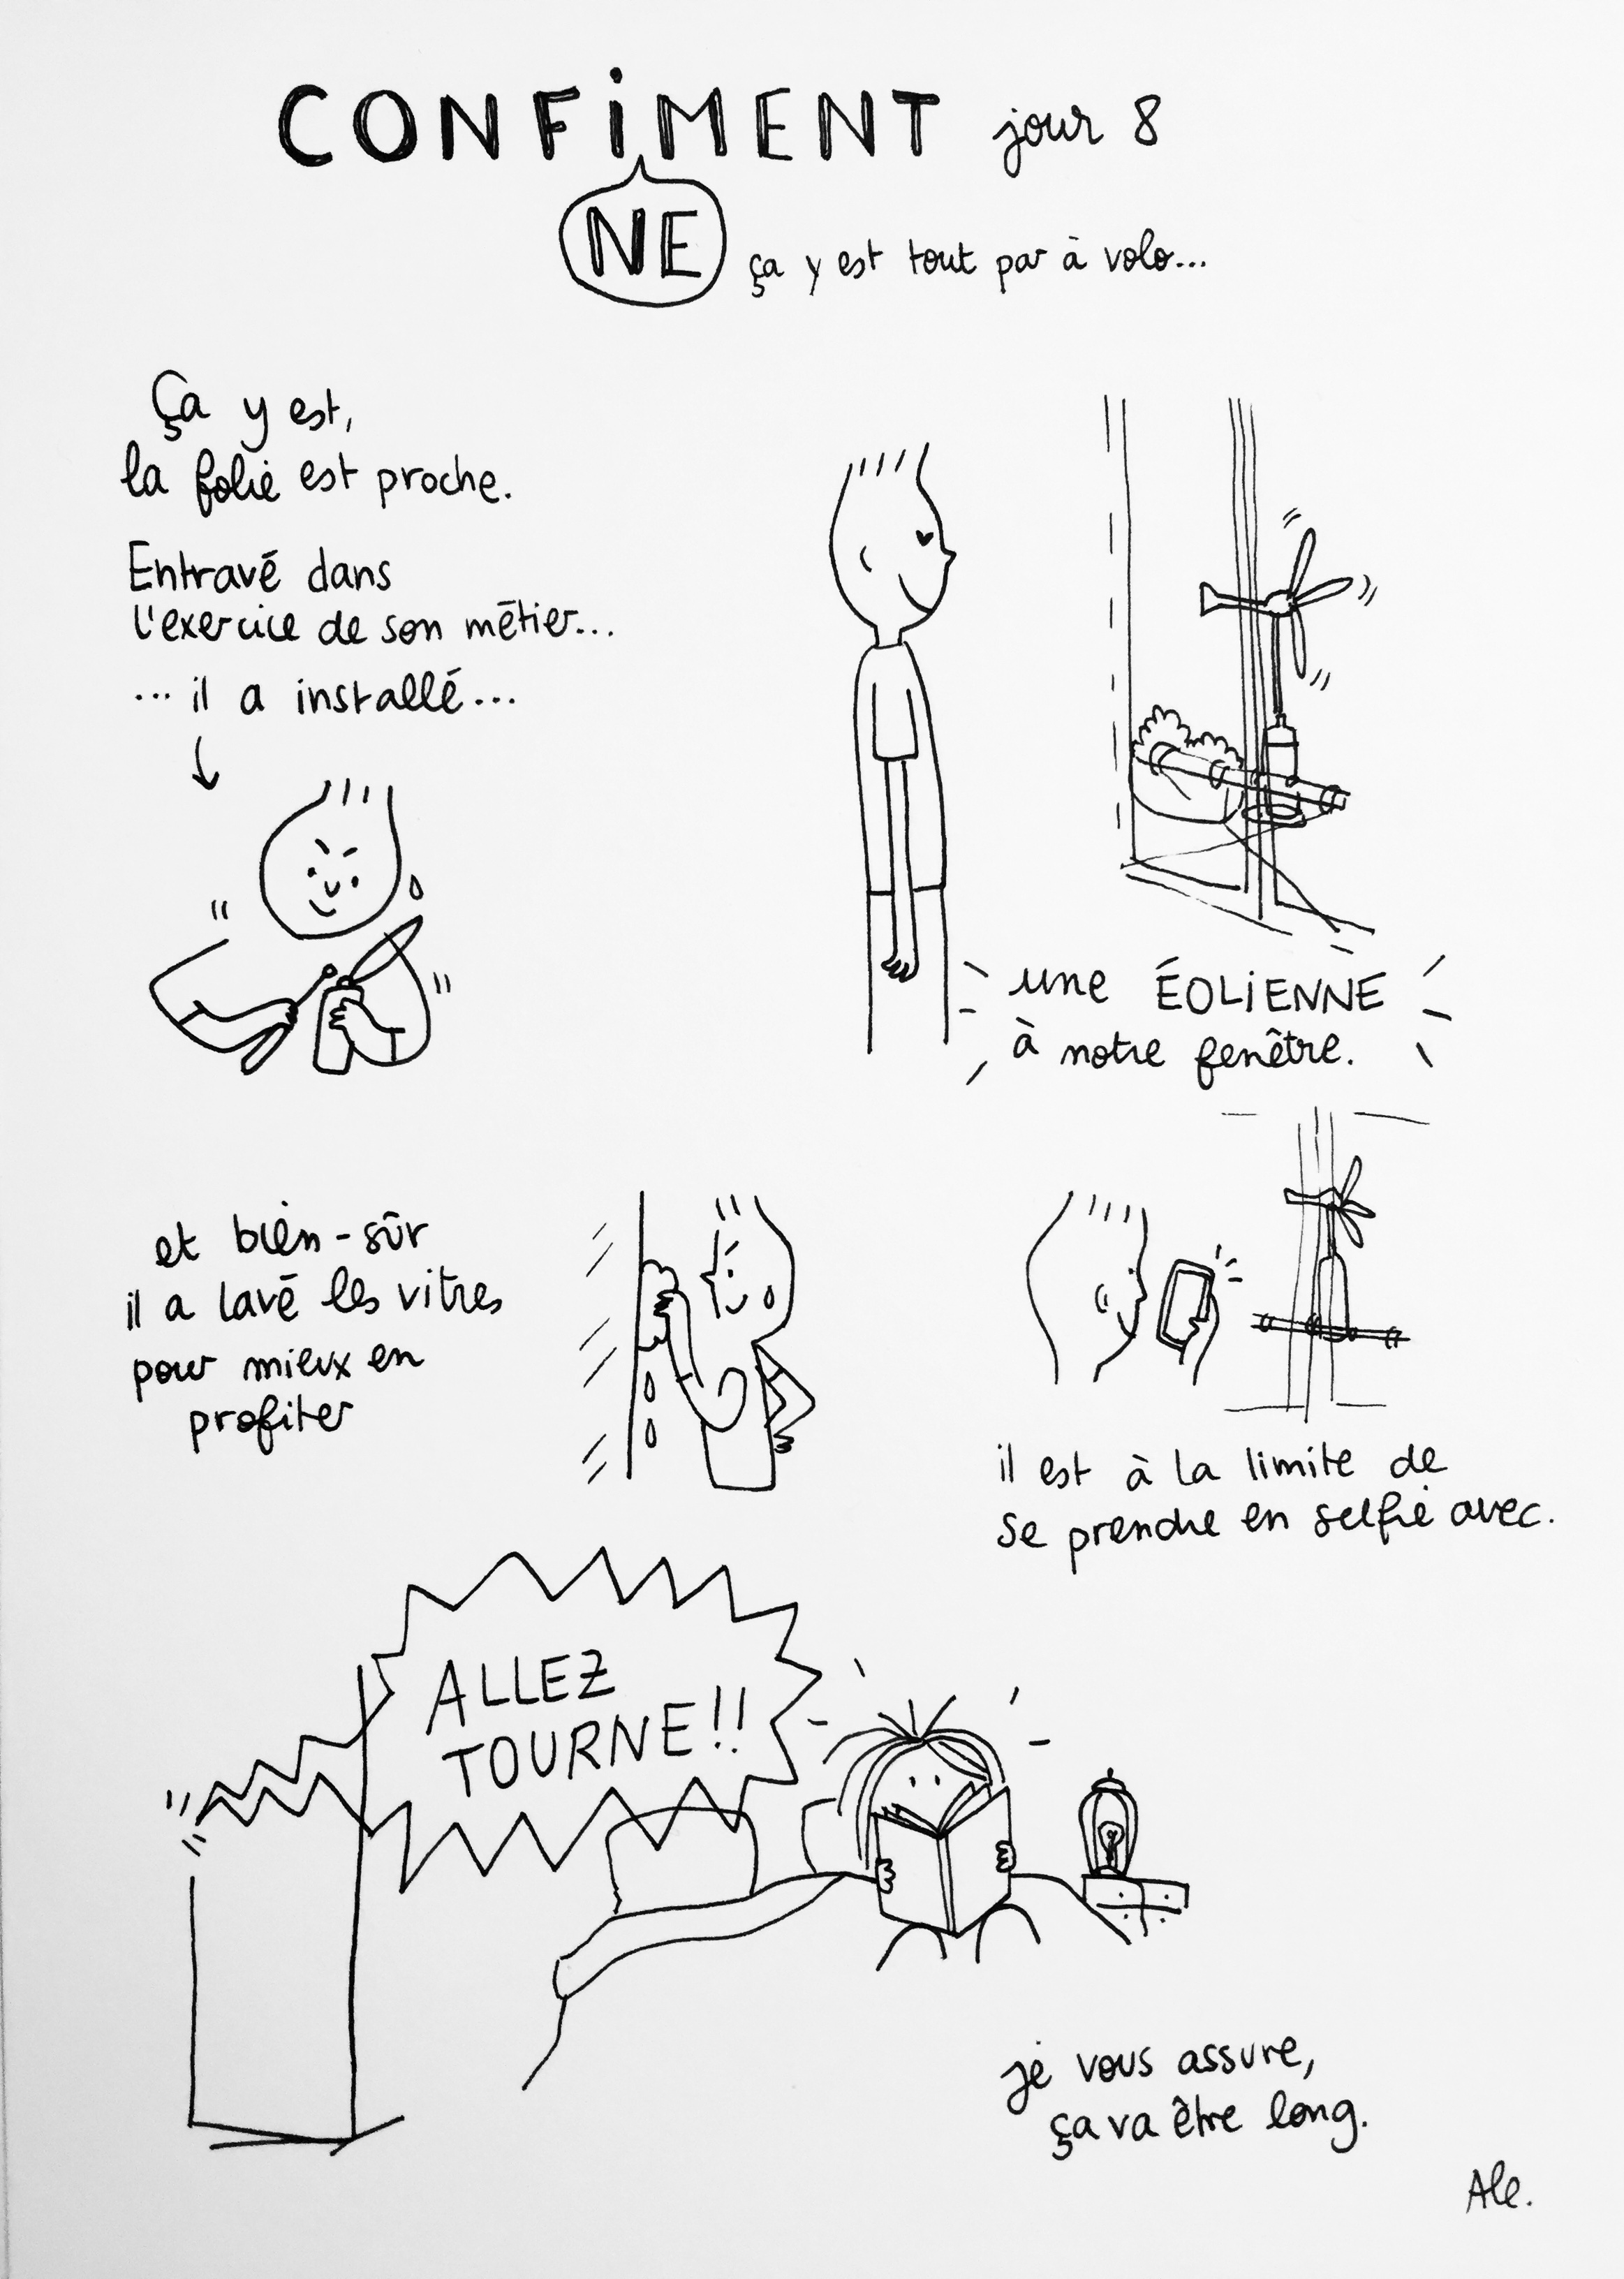 CONFiMENT jour 8
NE
ça y est tout par à volo...
Ça y est,
la folie est proche.
Entravé dans
l'exercice de son métier...
... il a installé...
une ÉOLiENNE
à notre fenêtre.
et bien-sûr
il a lavé les vitres
pour mieux en
profiter
il est à la limite de
se prendre en selfie avec.
ALLEZ
TOURNE!!
je vous assure,
ça va être long.
Ale.